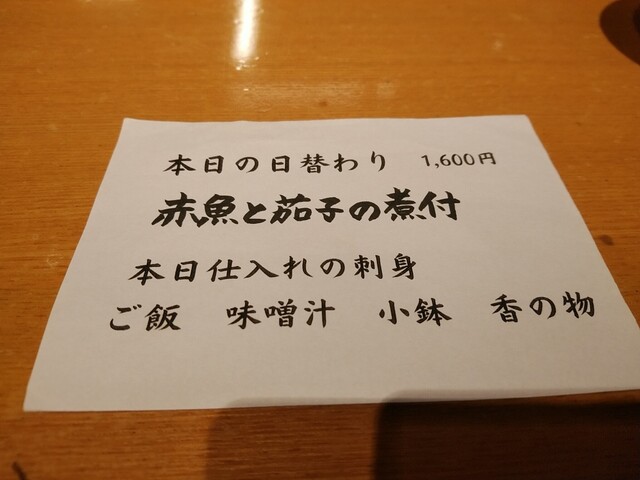 本日の日替わり 1,600円
赤魚と茄子の煮付
本日仕入れの刺身
ご飯 味噌汁 小鉢 香の物